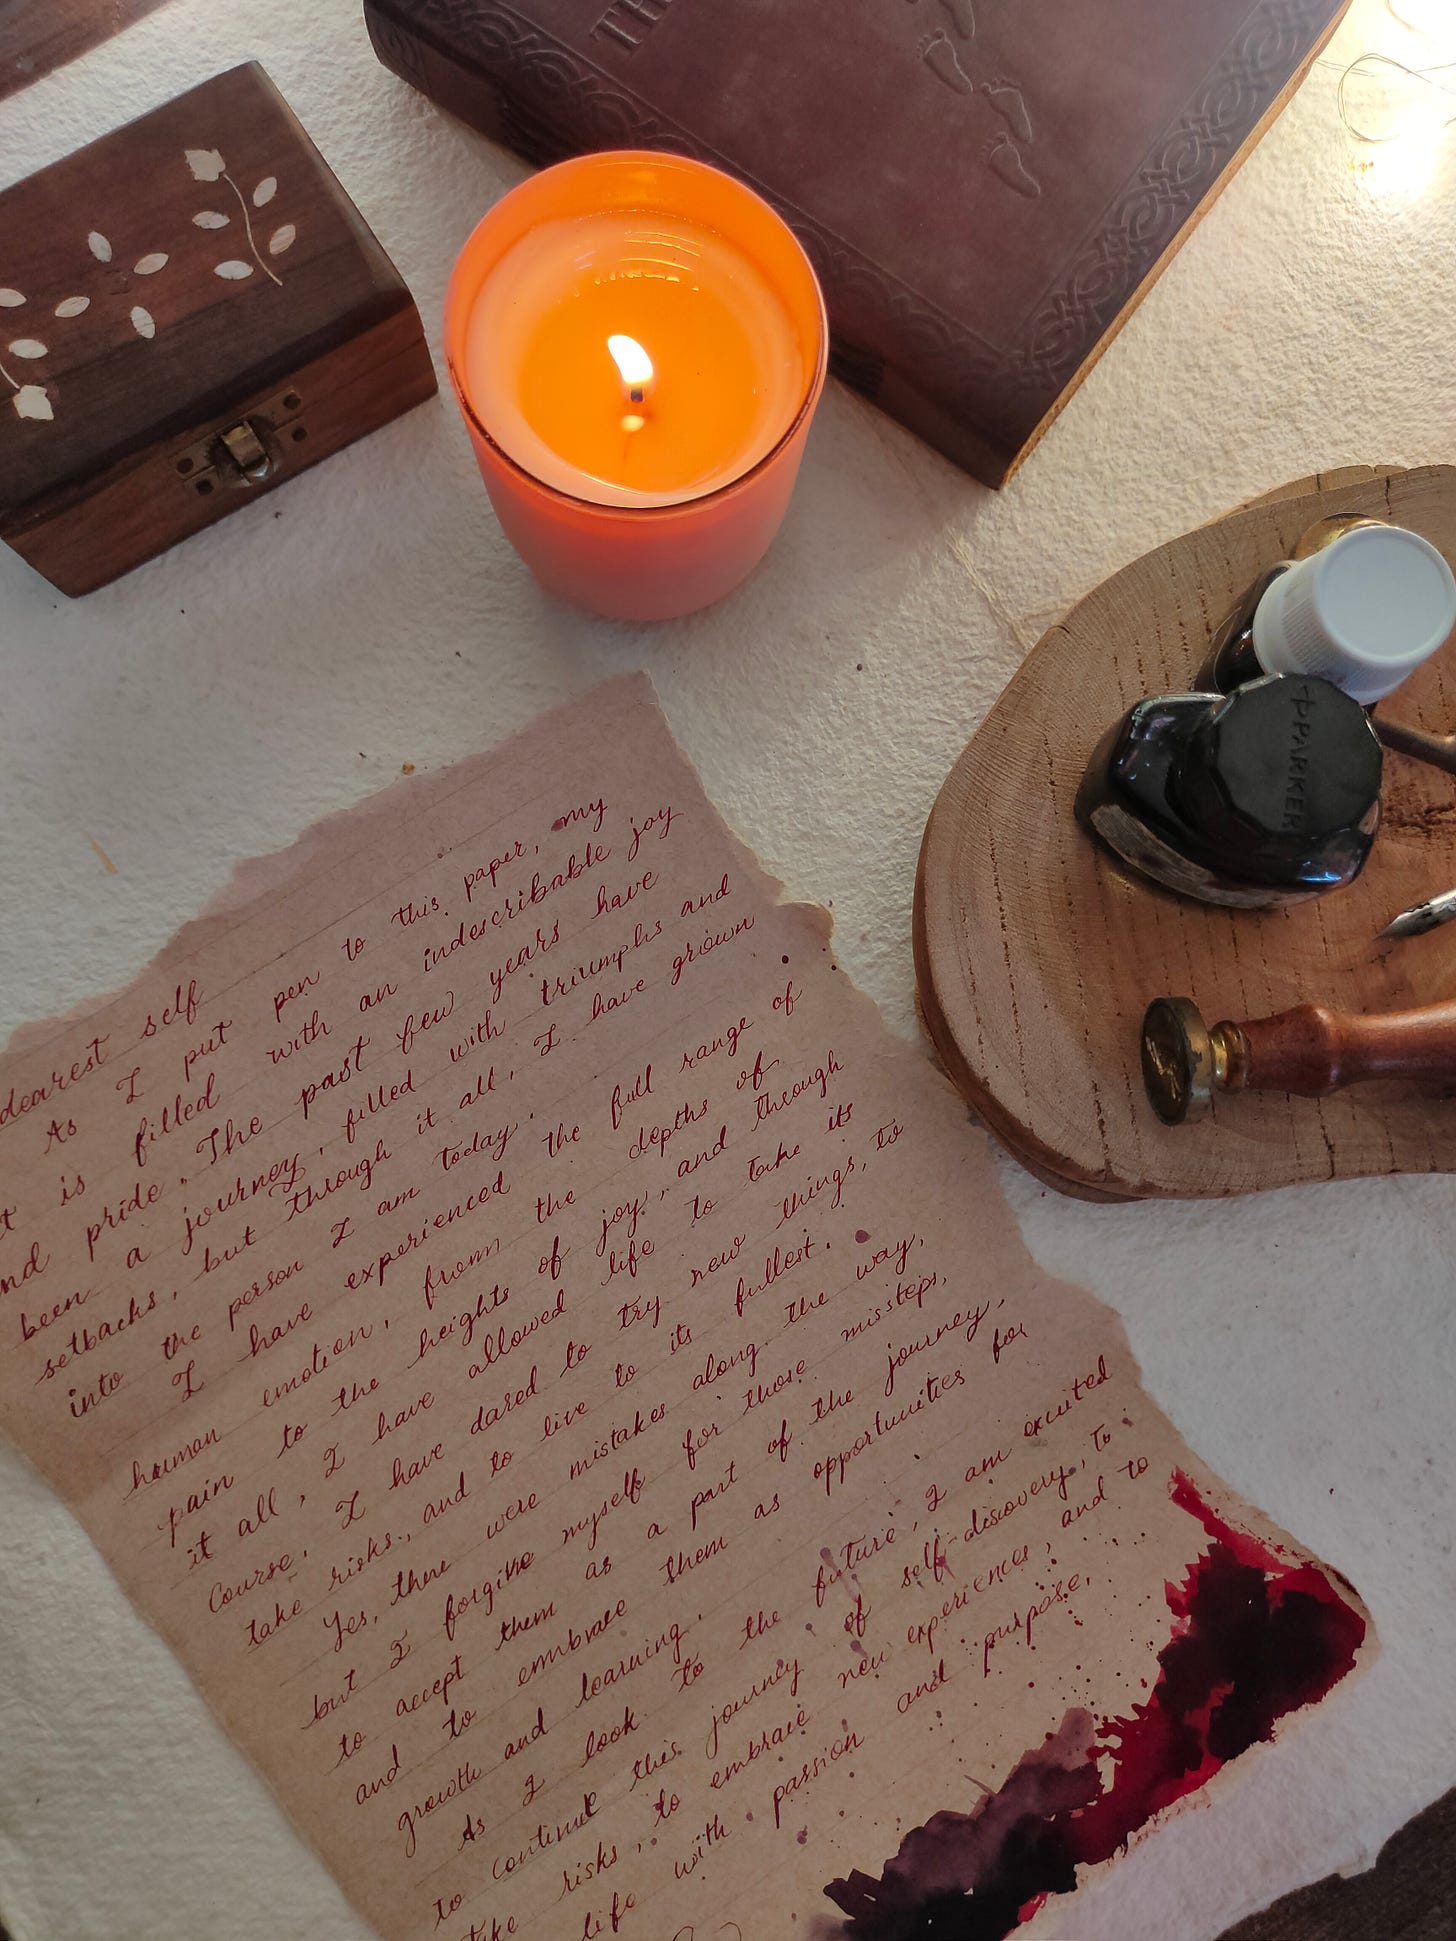 TH
PARKER
dearest self
As I put pen to this paper, my
t is filled with an indescribable joy
nd pride. The past few years have
been a journey, filled with triumphs and
setbacks, but through it all, I have grown
into the person I am today.
I have experienced the full range of
human emotion, from the depths of
pain to the heights of joy, and through
it all, I have allowed life to take its
Course. I have dared to try new things, to
take risks, and to live to its fullest.
Yes, there were mistakes along the way,
but I forgive myself for those missteps,
to accept them as a part of the journey,
and to embrace them as opportunities for
growth and learning.
As I look to the future, I am excited
to continue this journey of self-discovery, to
ake risks, to embrace new experiences, and to
life with passion and purpose.